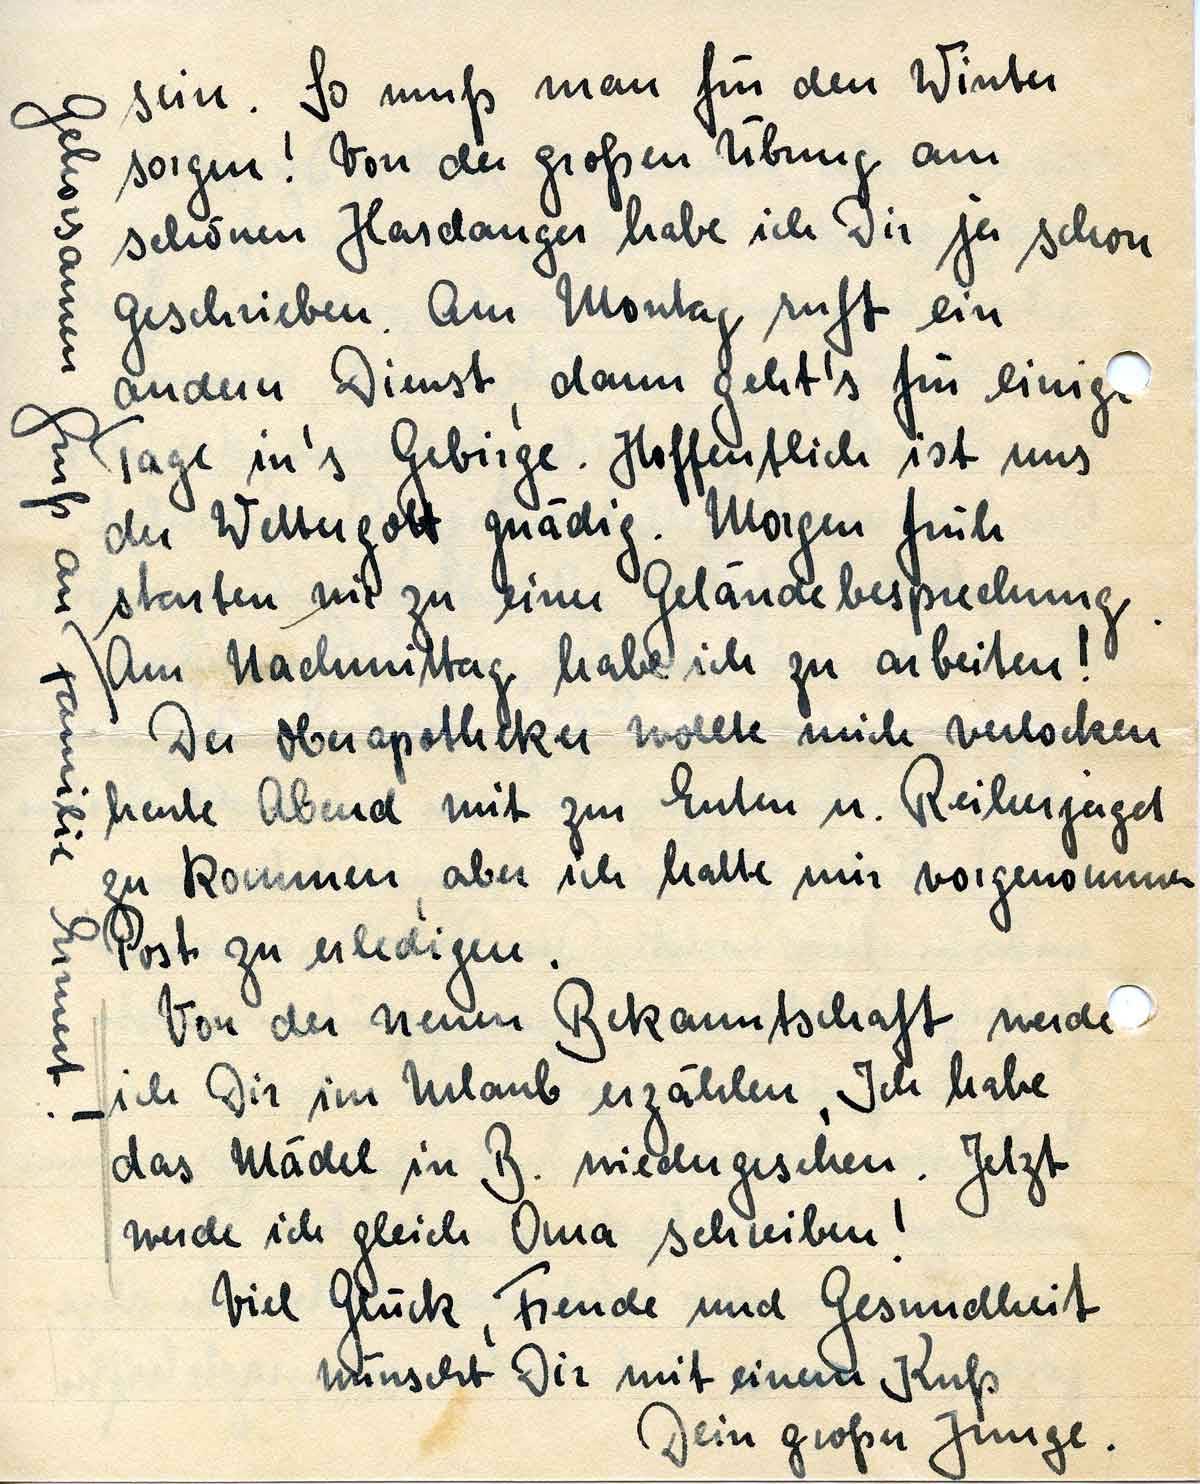 sein. So muß man für den Winter
sorgen! Von der großen Übung am
schönen Hardanger habe ich Dir ja schon
geschrieben. Am Montag ruft ein
andern Dienst, dann geht's für einige
Tage in's Gebirge. Hoffentlich ist uns
der Wettergott gnädig. Morgen früh
starten wir zu einer Geländebesprechung.
Am Nachmittag habe ich zu arbeiten!
Der Oberapotheker wollte mich verlocken
heute Abend mit zur Enten u. Reiherjagd
zu kommen, aber ich hatte mir vorgenommen
Post zu erledigen.
Von der neuen Bekanntschaft werde
ich Dir im Urlaub erzählen, Ich habe
das Mädel in B. wiedergesehen. Jetzt
werde ich gleich Oma schreiben!
Viel Glück, Freude und Gesundheit
wünscht Dir mit einem Kuß
Dein großer Junge.
Gehorsamen Gruß an Familie Ermert!